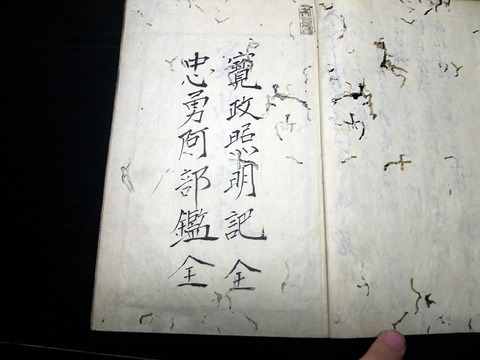 寛政照明記 全
忠勇阿部鑑 全